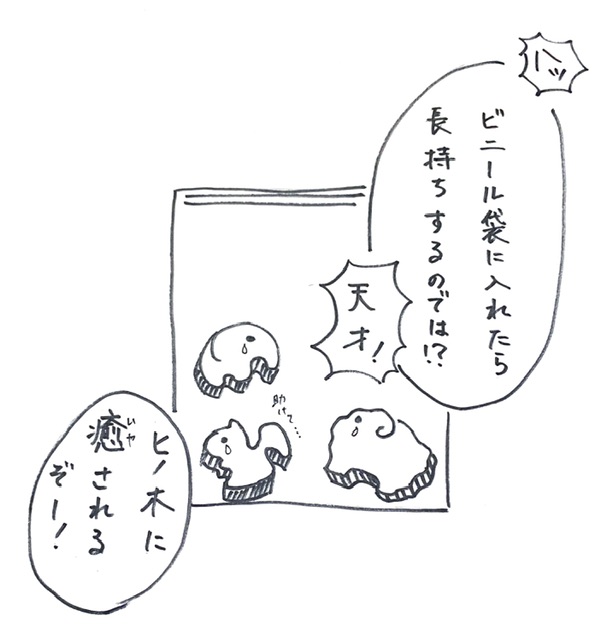 ハッ
ビニール袋に入れたら
長持ちするのでは!?
天才!
助けて…
ヒノ木に
癒される
いや
ぞー!